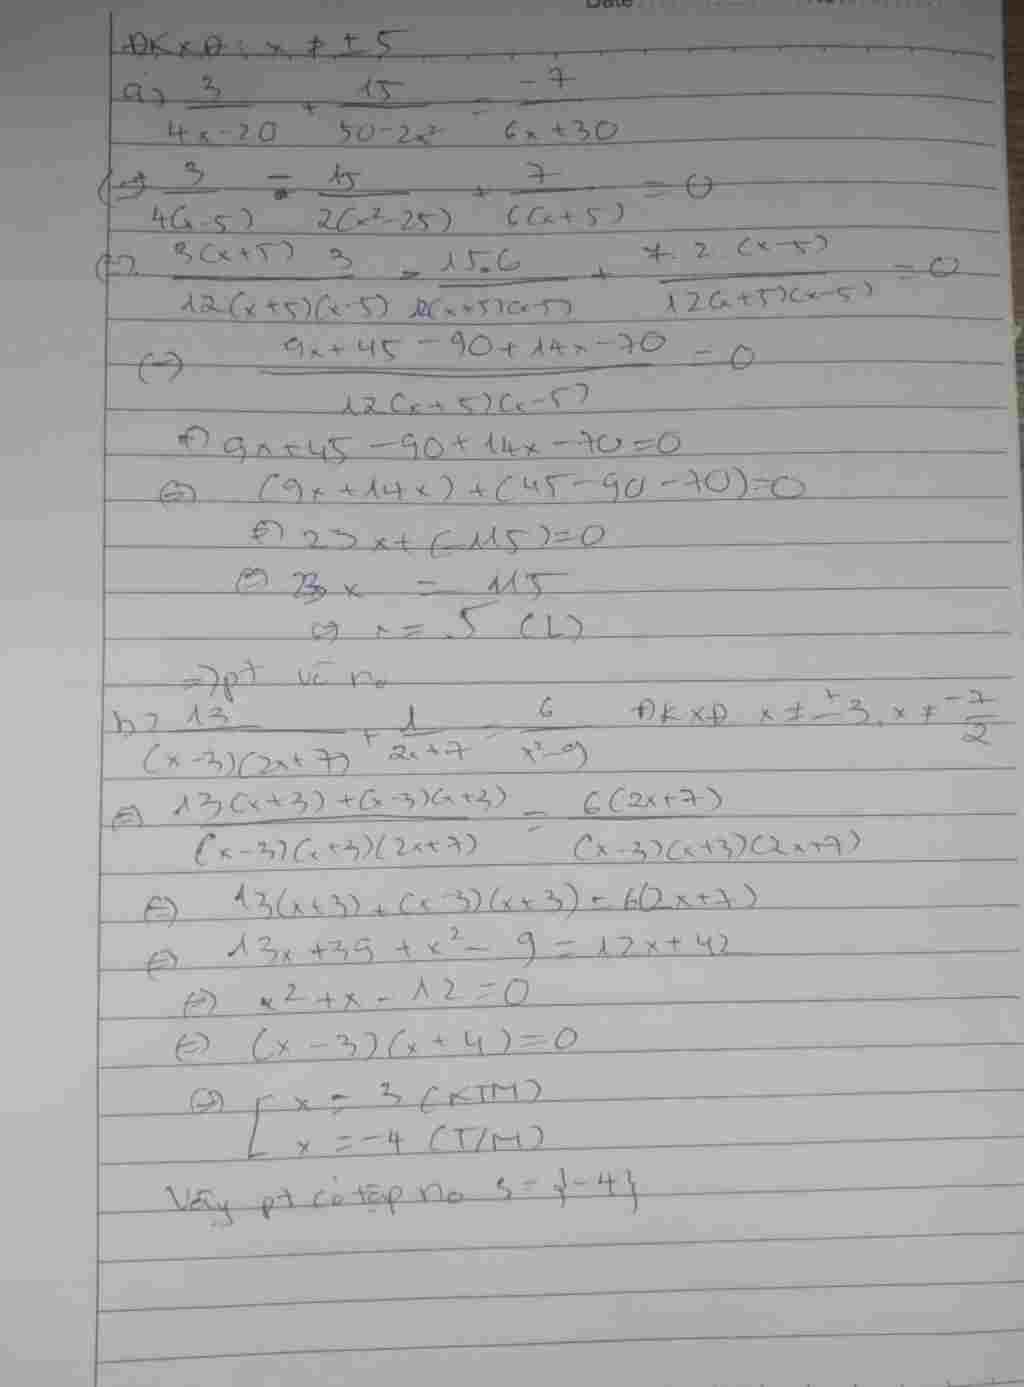 Date
ĐKXĐ: x ≠ ± 5
a) 3/(4x-20) + 15/(50-2x²) = -7/(6x+30)
(=) 3/(4(x-5)) - 15/(2(x²-25)) + 7/(6(x+5)) = 0
(=) 3(x+5) 3/(12(x+5)(x-5)) - 15.6/(12(x+5)(x-5)) + 7.2(x-5)/(12(x+5)(x-5)) = 0
(=) (9x+45-90+14x-70)/(12(x+5)(x-5)) = 0
(=) 9x+45-90+14x-70=0
(=) (9x+14x)+(45-90-70)=0
(=) 23x+(-115)=0
(=) 23x = 115
(=) x = 5 (L)
=> pt vô no
b) 13/((x-3)(2x+7)) + 1/(2x+7) = 6/(x²-9) ĐKXĐ x ≠ ±3, x ≠ -7/2
(=) (13(x+3)+(x-3)(x+3))/((x-3)(x+3)(2x+7)) = 6(2x+7)/((x-3)(x+3)(2x+7))
(=) 13(x+3)+(x-3)(x+3) = 6(2x+7)
(=) 13x+39+x²-9=12x+42
(=) x²+x-12=0
(=) (x-3)(x+4)=0
(=) [ x = 3 (KTM)
x = -4 (T/M)
Vậy pt có tập no S={-4}